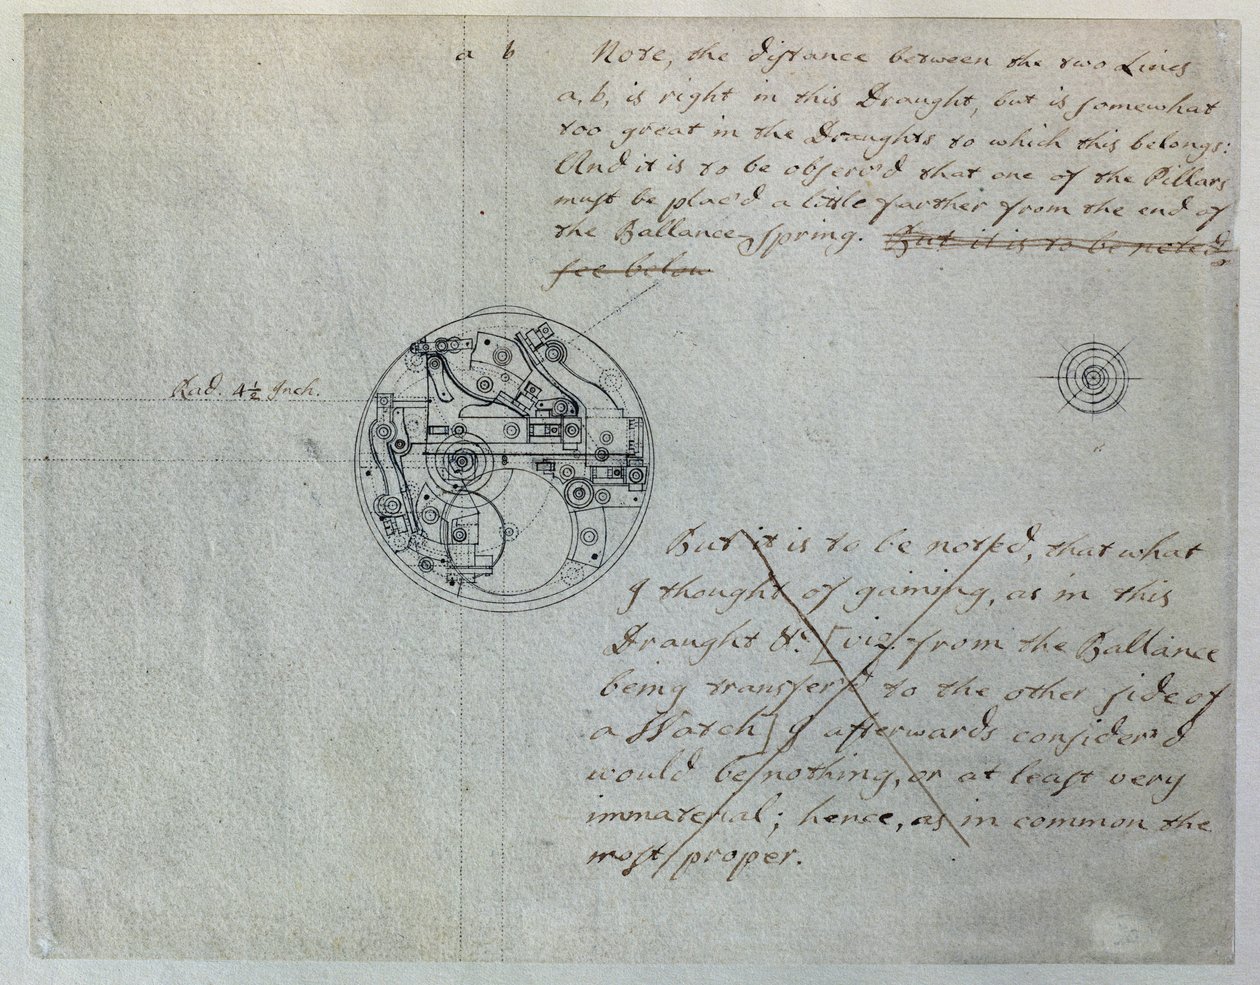 a b
Note, the distance between the two Lines
a, b, is right in this Draught, but is somewhat
too great in the Draughts to which this belongs:
And it is to be observ'd that one of the Pillars
must be plac'd a little farther from the end of
the Ballance-Spring. But it is to be noted
see below
Rad. 4½ Inch.
But it is to be noted, that what
I thought of gaining, as in this
Draught &c. [viz. from the Ballance
being transferr'd to the other side of
a Watch] I afterwards consider'd
would be nothing, or at least very
immaterial; hence, as in common the
most proper.